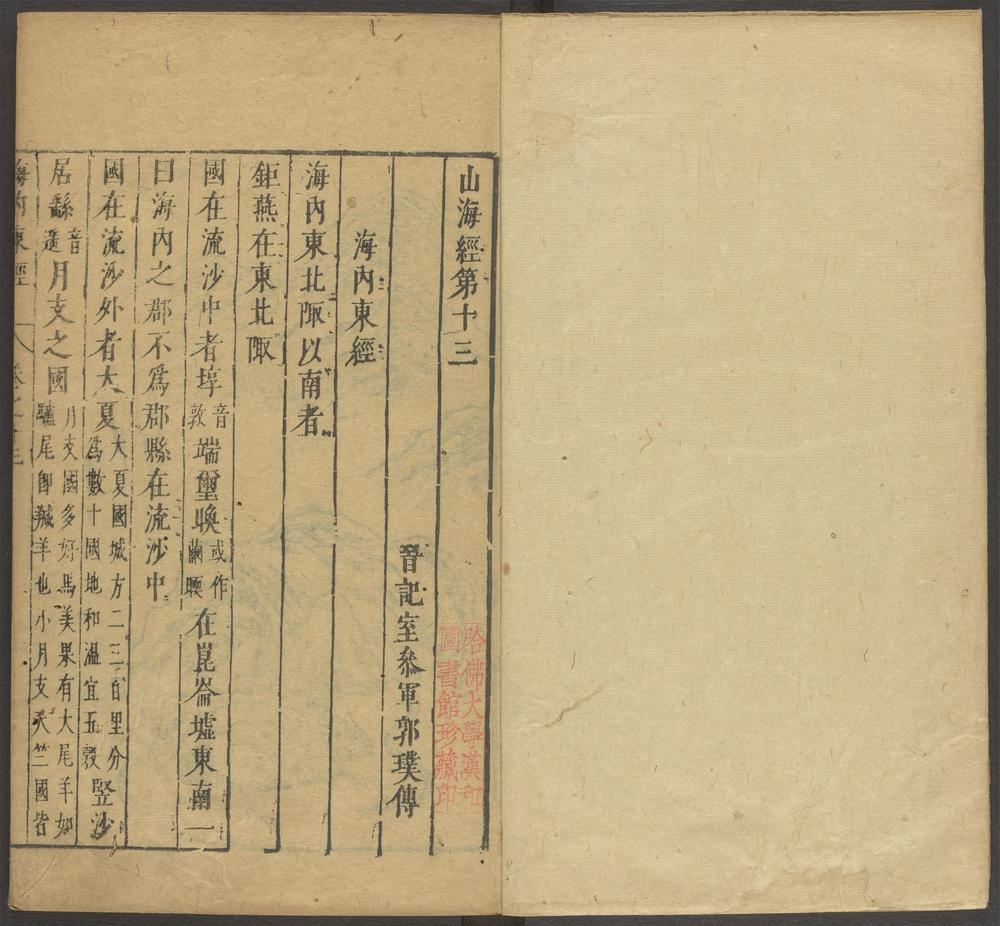 山海經第十三
晉記室叅軍郭璞傳
海內東經
海內東北陬以南者
鉅燕在東北陬
國在流沙中者埻音敦端璽㬇或作繭暥在崑崙墟東南一
曰海內之郡不爲郡縣在流沙中
國在流沙外者大夏大夏國城方二三百里分爲數十國地和溫宜五穀豎沙
居繇音遙月支之國月支國多好馬美果有大尾羊如驢尾卽羬羊也小月支天竺國皆
海內東經
哈佛大學漢和
圖書館珍藏印